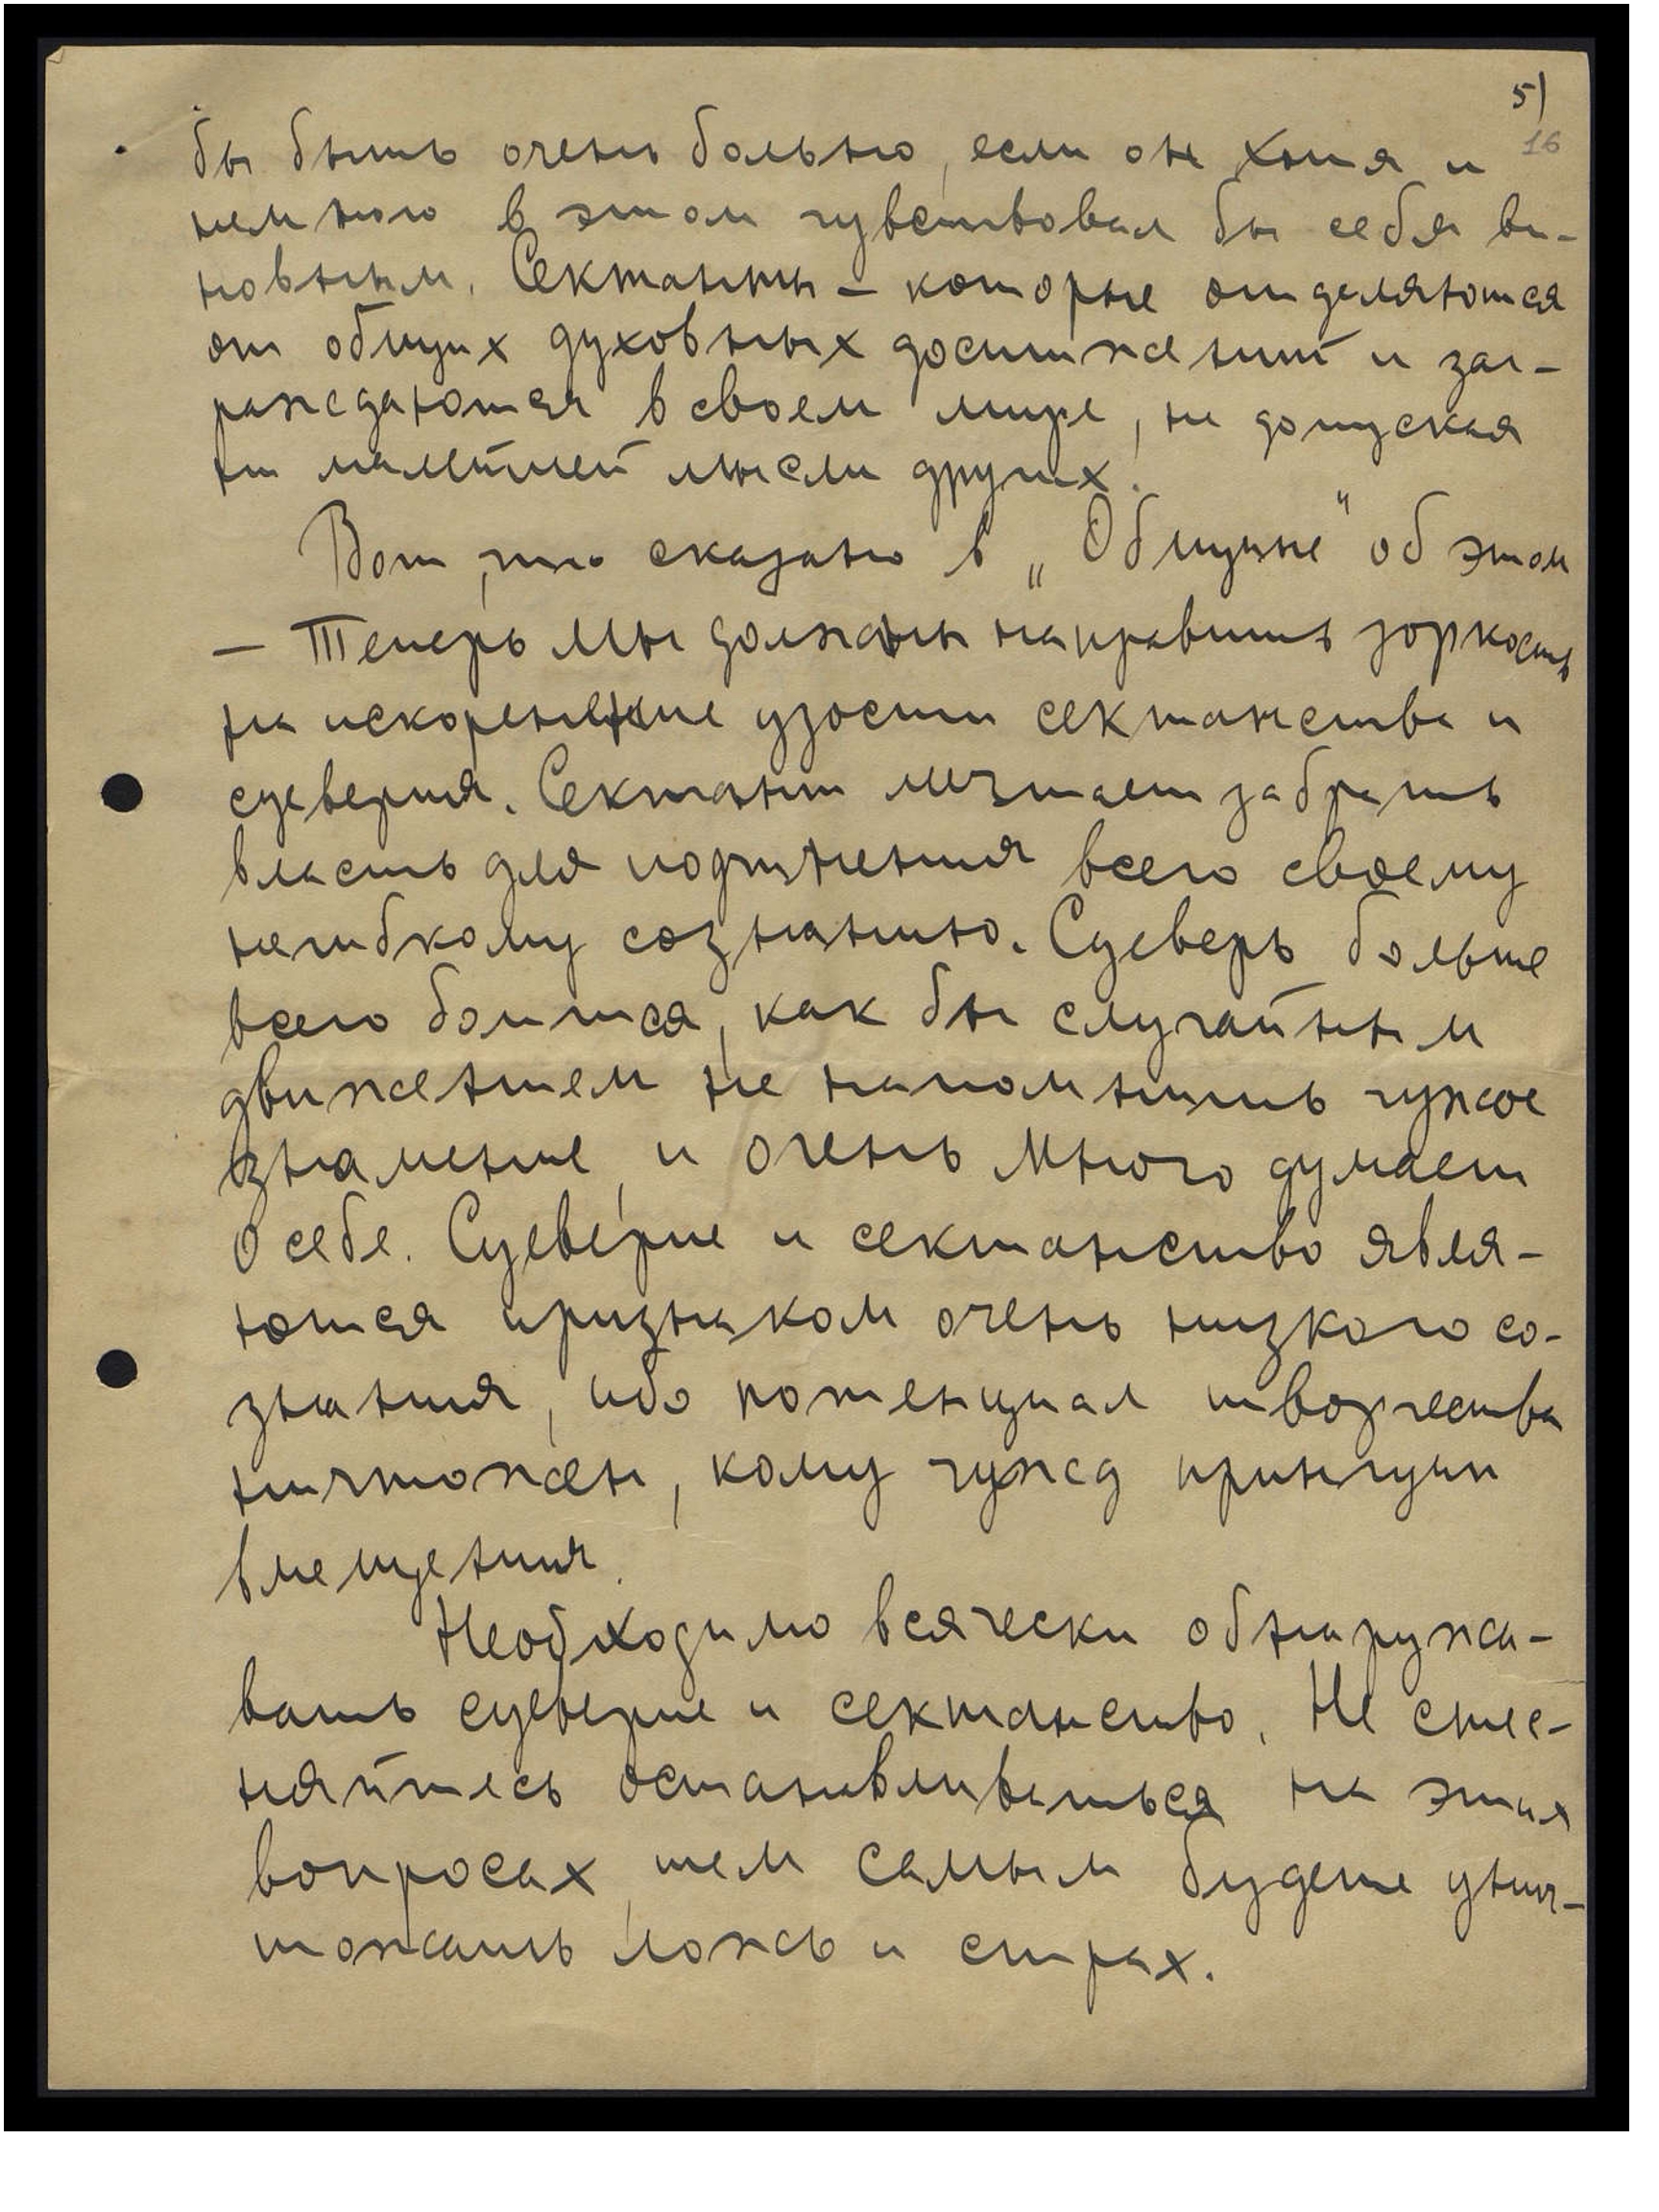 5)
16
бы быть очень больно, если он хотя и
немного в этом чувствовал бы себя ви-
новным. Сектанты – которые отделяются
от общих духовных достижений и заг-
раждаются в своем мире, не допуская
ни малейшей мысли других.
Вот, что сказано в „Общине" об этом
— Теперь Мы должны направить зоркость
на искоренение узости сектанства и
суеверия. Сектант мечтает забрать
власть для подчинения всего своему
негибкому сознанию. Суеверъ больше
всего боится, как бы случайным
движением не напомнить чужое
знамение, и очень много думает
о себе. Суеверие и сектанство явля-
ются признаком очень низкого со-
знания, ибо потенциал творчества
ничтожен, кому чужд принцип
вмещения.
Необходимо всячески обнаружи-
вать суеверие и сектанство. Не стес-
няйтесь останавливаться на этих
вопросах, тем самым будете унич-
тожать ложь и страх.